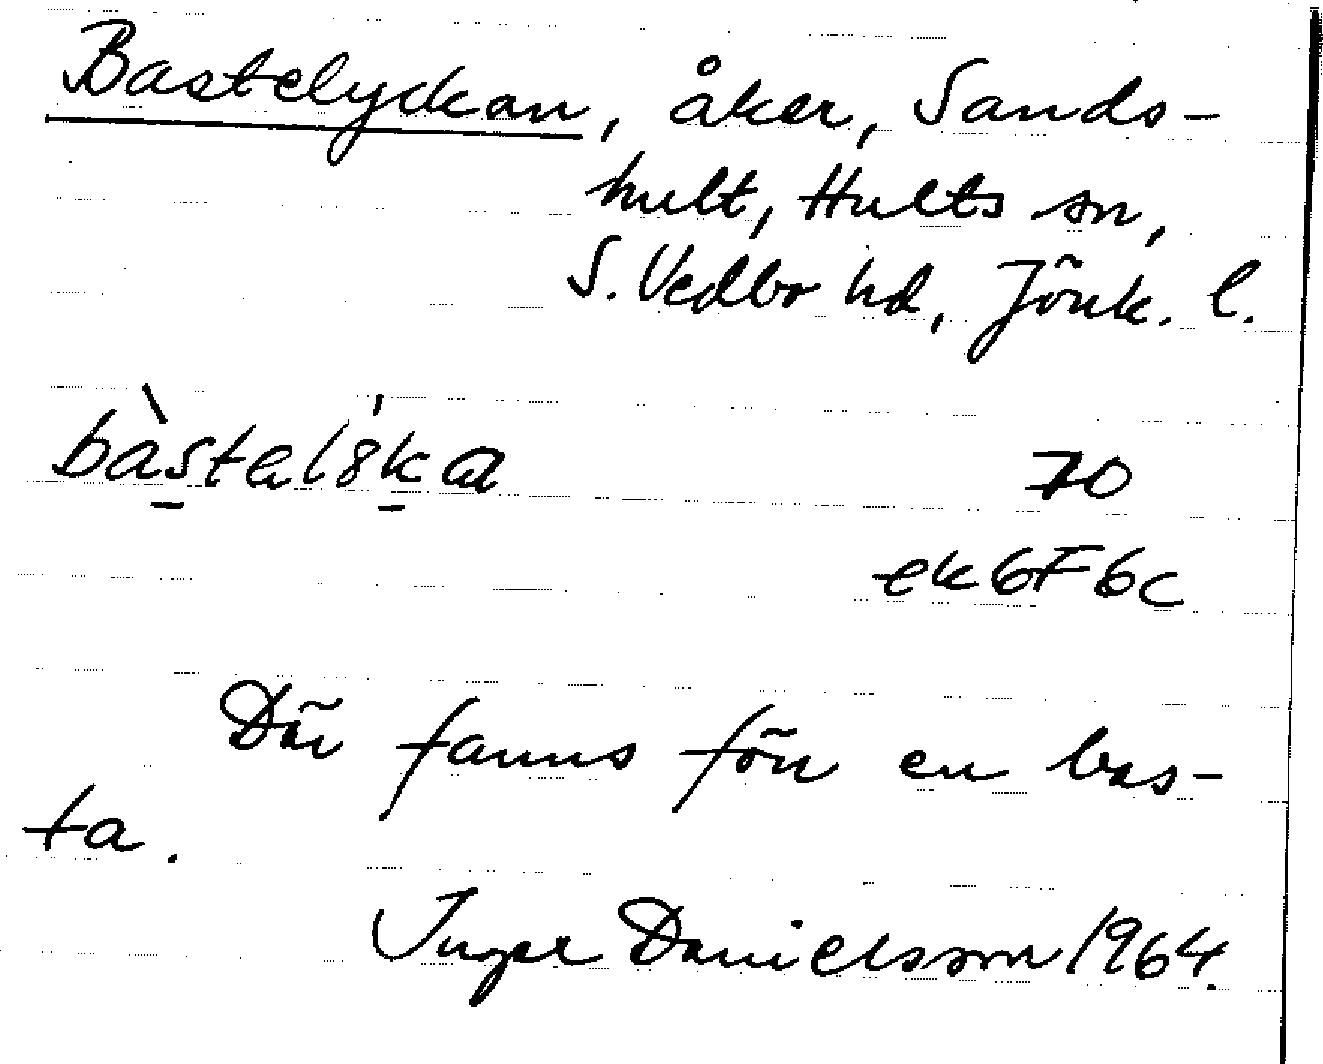 Bastelyckan, åker, Sands-
hult, Hults sn,
S. Vedbo hd, Jönk. l.
bàstalı̍ska 70
ek6F6c
Där fanns förr en bas-
ta.
Inger Danielsson 1964.